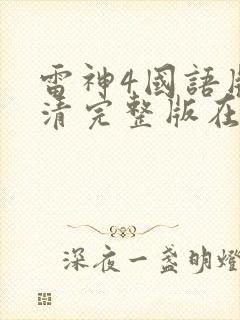 雷神4國語
清完整版在
深夜一盏明燈